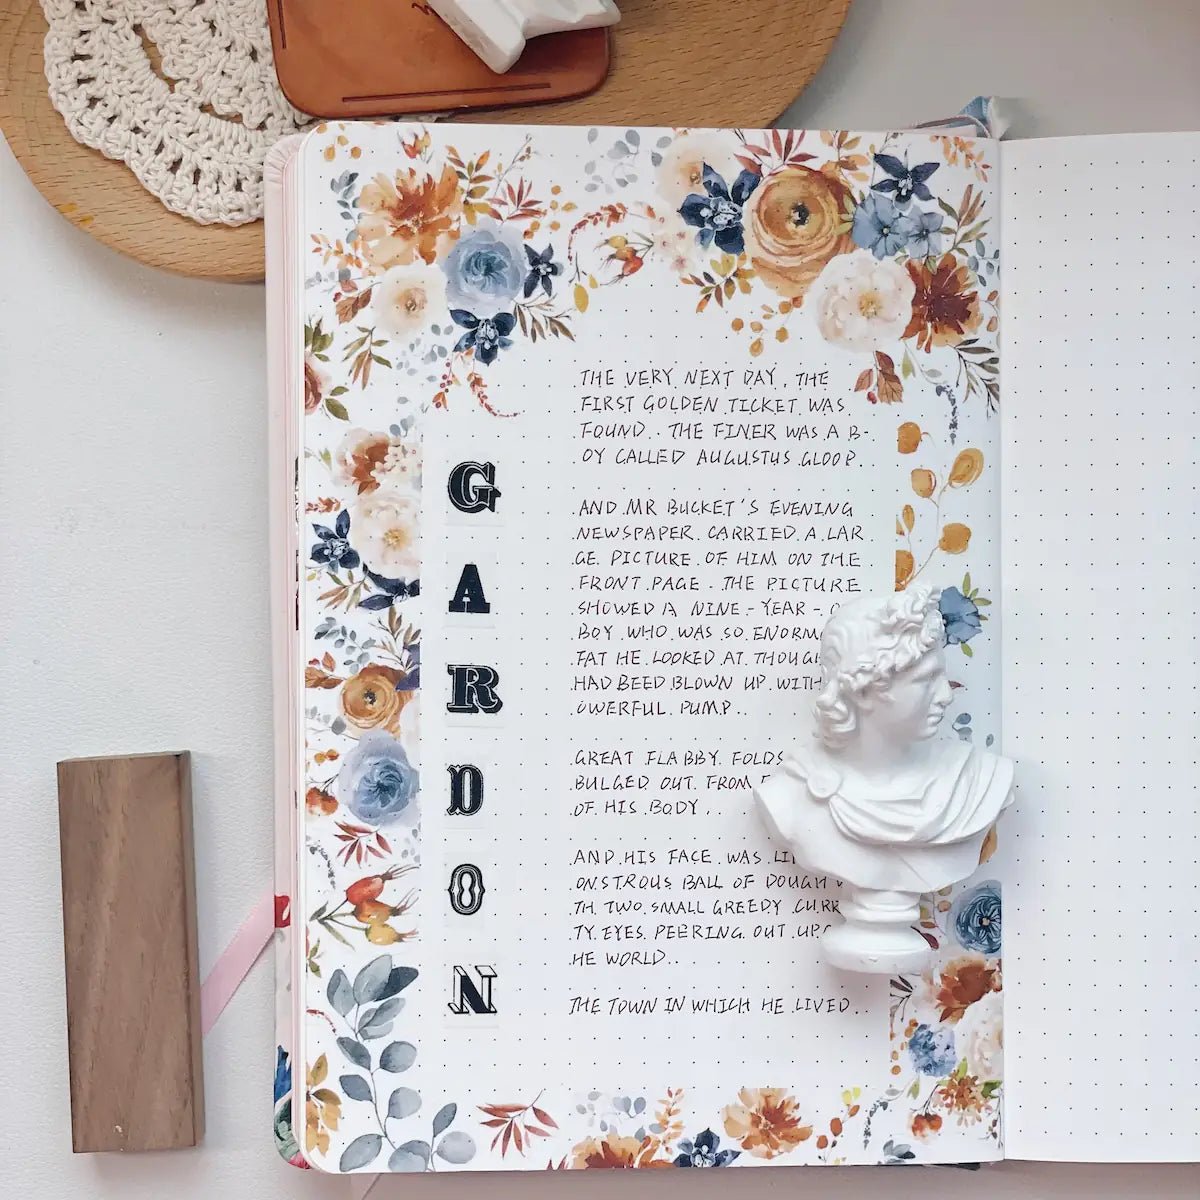 GARDON
THE VERY NEXT DAY, THE
FIRST GOLDEN TICKET WAS
FOUND.. THE FINER WAS A B-
OY CALLED AUGUSTUS GLOOP.
AND MR BUCKET'S EVENING
NEWSPAPER CARRIED A LAR
GE PICTURE OF HIM ON THE
FRONT PAGE. THE PICTURE
SHOWED A NINE-YEAR-
BOY WHO WAS SO ENORM
FAT HE LOOKED AT THOUGH
HAD BEED BLOWN UP WITH
OWERFUL PUMP..
GREAT FLABBY FOLDS
BULGED OUT FROM
OF HIS BODY..
AND HIS FACE WAS LI
ONSTROUS BALL OF DOUGH
TH TWO SMALL GREEDY CURR
TY EYES PEERING OUT UPO
HE WORLD..
THE TOWN IN WHICH HE LIVED..